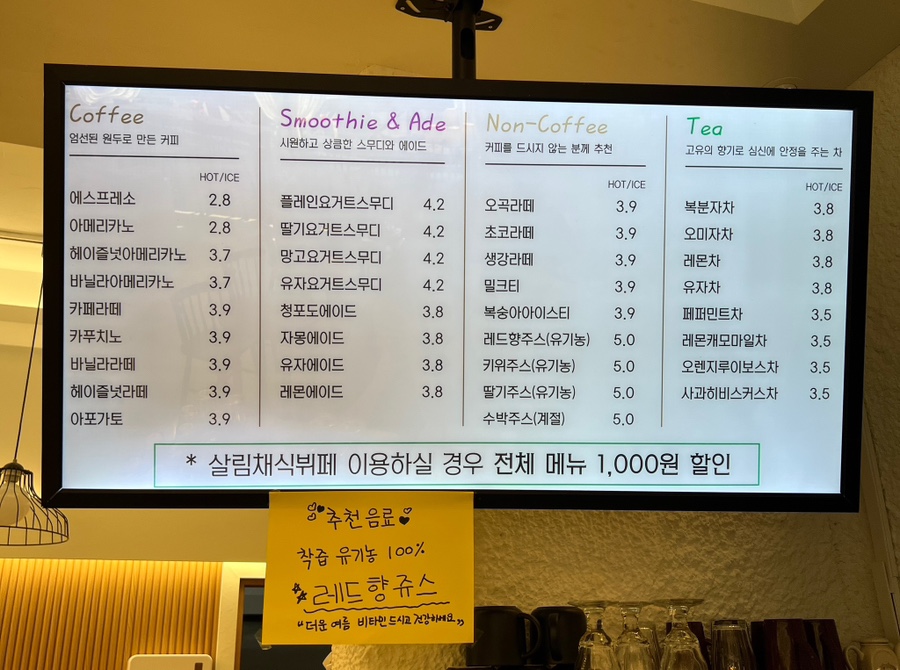 Coffee
엄선된 원두로 만든 커피
HOT/ICE
에스프레소 2.8
아메리카노 2.8
헤이즐넛아메리카노 3.7
바닐라아메리카노 3.7
카페라떼 3.9
카푸치노 3.9
바닐라라떼 3.9
헤이즐넛라떼 3.9
아포가토 3.9
Smoothie & Ade
시원하고 상큼한 스무디와 에이드
플레인요거트스무디 4.2
딸기요거트스무디 4.2
망고요거트스무디 4.2
유자요거트스무디 4.2
청포도에이드 3.8
자몽에이드 3.8
유자에이드 3.8
레몬에이드 3.8
Non-Coffee
커피를 드시지 않는 분께 추천
HOT/ICE
오곡라떼 3.9
초코라떼 3.9
생강라떼 3.9
밀크티 3.9
복숭아아이스티 3.9
레드향주스(유기농) 5.0
키위주스(유기농) 5.0
딸기주스(유기농) 5.0
수박주스(계절) 5.0
Tea
고유의 향기로 심신에 안정을 주는 차
HOT/ICE
복분자차 3.8
오미자차 3.8
레몬차 3.8
유자차 3.8
페퍼민트차 3.5
레몬캐모마일차 3.5
오렌지루이보스차 3.5
사과히비스커스차 3.5
* 살림채식뷔페 이용하실 경우 전체 메뉴 1,000원 할인
추천음료
착즙 유기농 100%
레드향쥬스
"더운 여름 비타민드시고 건강하세요"